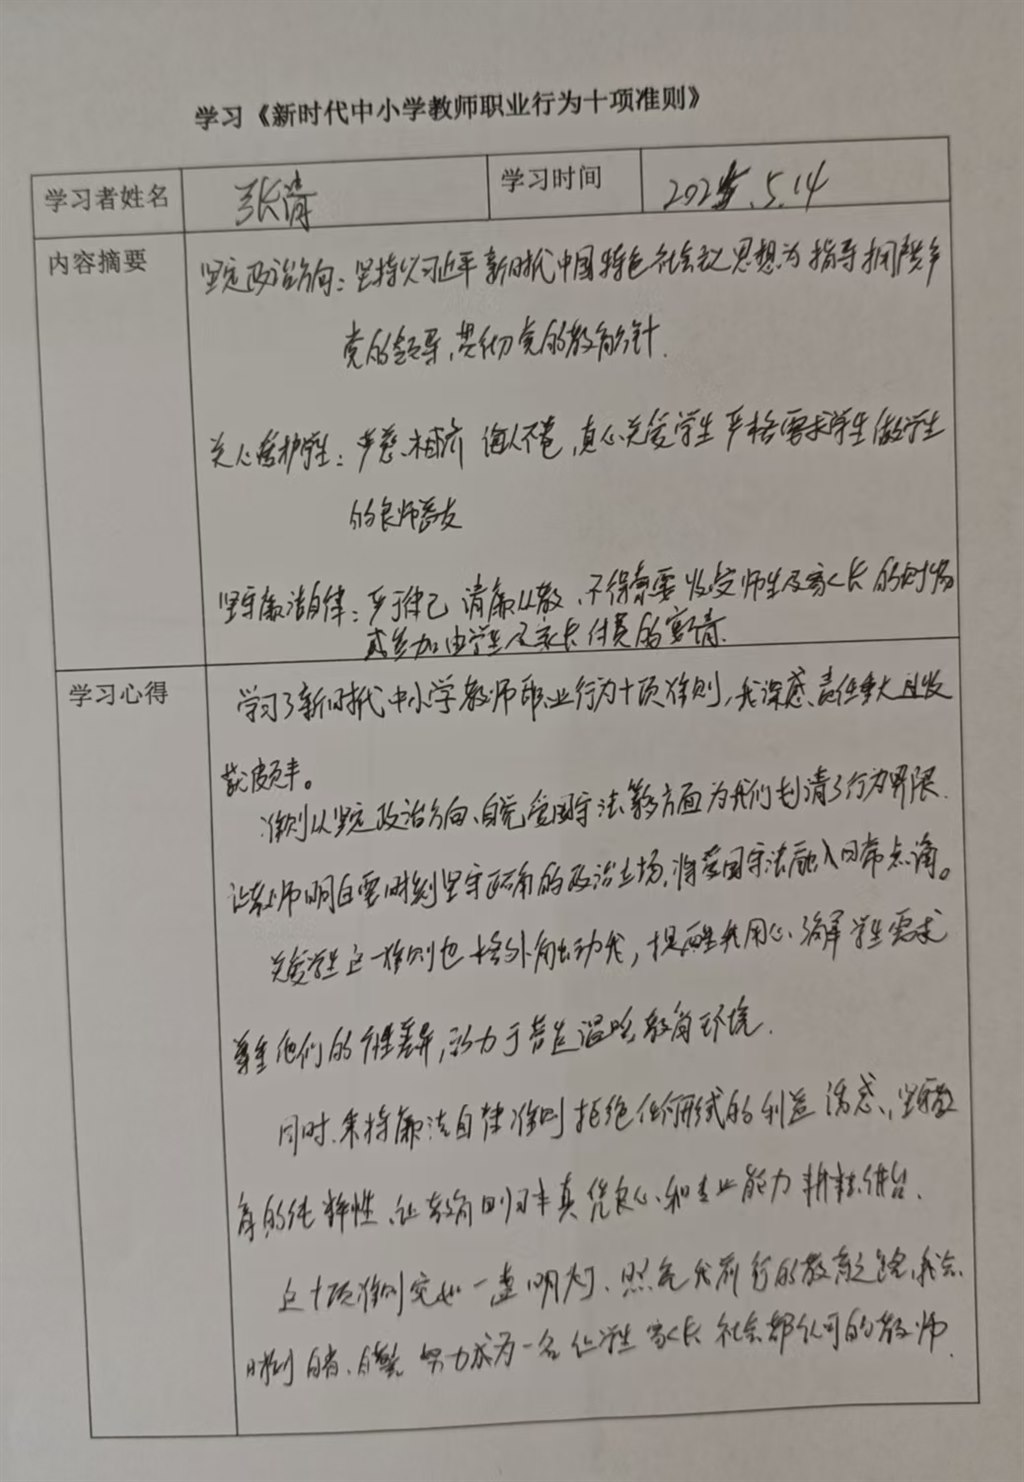 学习《新时代中小学教师职业行为十项准则》
学习者姓名 张清 学习时间 2025.5.14
内容摘要
坚定政治方向：坚持以习近平新时代中国特色社会主义思想为指导拥护
党的领导，贯彻党的教育方针.
关心爱护学生：严慈相济 诲人不倦，真心关爱学生 严格要求学生 做学生
的良师益友
坚守廉洁自律：严于律己 清廉从教、不得索要 收受师生及家长的财物
或参加由学生及家长付费的宴请.
学习心得
学习了新时代中小学教师职业行为十项准则，我深感责任重大且收
获颇丰。
准则从坚定政治方向、自觉爱国守法等方面为我们划清了行为界限.
让教师明白要时刻坚守正确的政治立场，将爱国守法融入日常点滴。
关爱学生这一准则也格外触动我，提醒我用心了解学生需求
尊重他们的个性差异，致力于营造温暖教育环境.
同时、秉持廉洁自律准则 拒绝任何形式的利益诱惑、坚守教
育的纯粹性、让教育回归本真 凭良心和专业能力耕耘讲台.
这十项准则宛如一盏明灯、照亮我前行的教育之路，我会
时刻自省、自警 努力成为一名让学生 家长 社会都认可的教师.